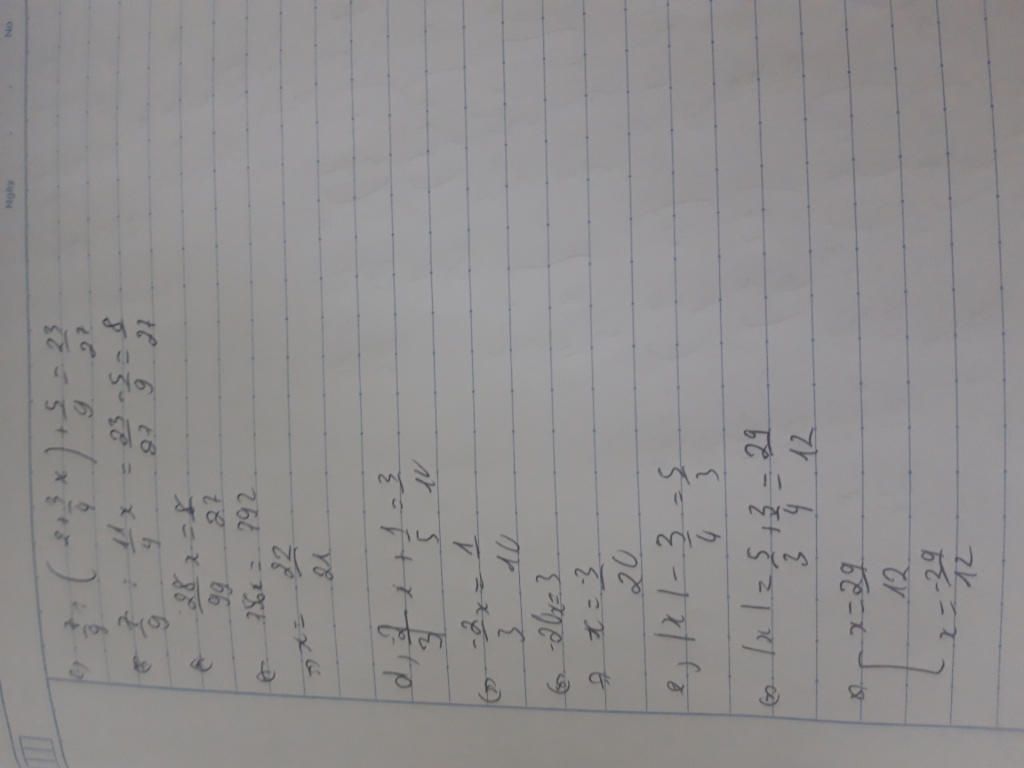 Ngày . . No
c, 7/9 : (2 + 3/4 x) + 5/9 = 23/27
⇔ 7/9 : 11/4 x = 23/27 - 5/9 = 8/27
⇔ 28/99 x = 8/27
⇔ 756x = 792
⇒ x = 22/21
d, -2/3 x + 1/5 = 3/10
⇔ -2/3 x = 1/10
⇔ -20x = 3
⇒ x = -3/20
e, |x| - 3/4 = 5/3
⇔ |x| = 5/3 + 3/4 = 29/12
⇔ [ x = 29/12
[ x = -29/12